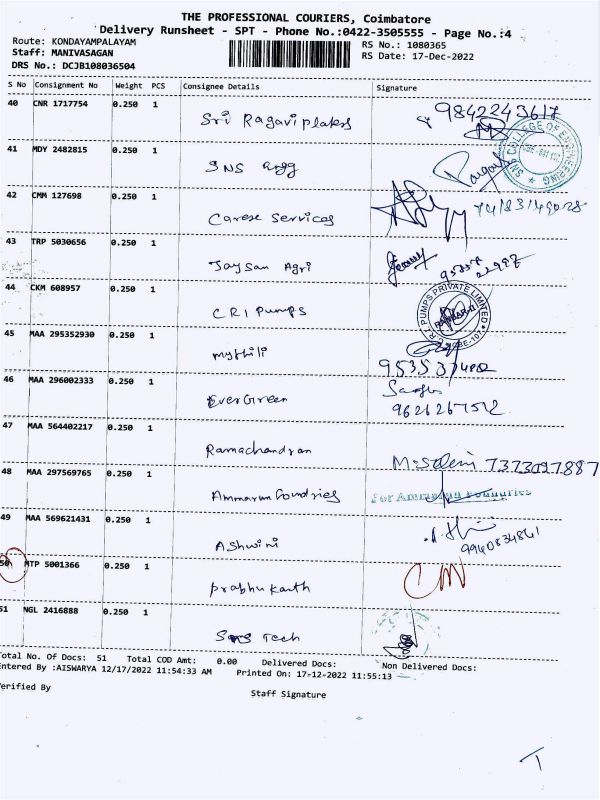 THE PROFESSIONAL COURIERS, Coimbatore
Delivery Runsheet - SPT - Phone No.:0422-3505555 - Page No.:4
Route: KONDAYAMPALAYAM RS No.: 1080365
Staff: MANIVASAGAN RS Date: 17-Dec-2022
DRS No.: DCJB108036504
S No Consignment No Weight PCS Consignee Details Signature
40 CNR 1717754 0.250 1
Sri Ragavi plakes 9842243617
41 MDY 2482815 0.250 1
SNS Engg SNS COLLEGE OF ENGINEERING
42 CMM 127698 0.250 1
Carese Services
43 TRP 5030656 0.250 1
Jaysan Agri
44 CKM 608957 0.250 1
CRI Pumps C.R.I. PUMPS PRIVATE LIMITED
45 MAA 295352930 0.250 1
mythili
46 MAA 296002333 0.250 1
EverGreen 9626267512
47 MAA 564402217 0.250 1
Ramachandran
48 MAA 297569765 0.250 1
Ammarun foundries For Ammarun Foundries
49 MAA 569621431 0.250 1
Ashwini 9940834841
50 MTP 5001366 0.250 1
prabhu kanth
51 NGL 2416888 0.250 1
Sms Tech
Total No. Of Docs: 51 Total COD Amt: 0.00 Delivered Docs: Non Delivered Docs:
Entered By :AISWARYA 12/17/2022 11:54:33 AM Printed On: 17-12-2022 11:55:13
Verified By Staff Signature